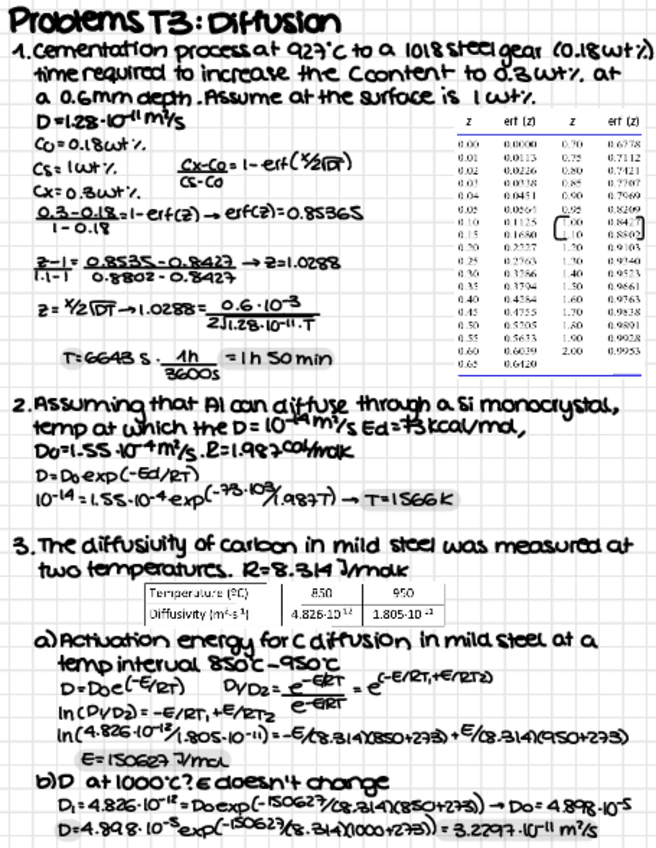 Problems T3: Diffusion
1. Cementation process at 927°C to a 1018 steel gear (0.18wt%)
time required to increase the C content to 0.3wt% at
a 0.6mm depth. Assume at the surface is 1wt%.
D=1.28·10^-11 m²/s
C0=0.18wt%
Cs=1wt%
Cx=0.3wt%
Cx-C0/Cs-C0 = 1-erf(x/2√DT)
0.3-0.18/1-0.18 = 1-erf(z) → erf(z)=0.85365
z-1/1.1-1 = 0.8535-0.8427/0.8802-0.8427 → z=1.0288
z=x/2√DT → 1.0288 = 0.6·10^-3/2√1.28·10^-11·T
T=6643 s · 1h/3600s = 1h 50min
z erf (z) z erf (z)
0.00 0.0000 0.70 0.6778
0.01 0.0113 0.75 0.7112
0.02 0.0226 0.80 0.7421
0.03 0.0338 0.85 0.7707
0.04 0.0451 0.90 0.7969
0.05 0.0564 0.95 0.8209
0.10 0.1125 1.00 0.8427
0.15 0.1680 1.10 0.8802
0.20 0.2227 1.20 0.9103
0.25 0.2763 1.30 0.9340
0.30 0.3286 1.40 0.9523
0.35 0.3794 1.50 0.9661
0.40 0.4284 1.60 0.9763
0.45 0.4755 1.70 0.9838
0.50 0.5205 1.80 0.9891
0.55 0.5633 1.90 0.9928
0.60 0.6039 2.00 0.9953
0.65 0.6420
2. Assuming that Al can diffuse through a Si monocrystal,
temp at which the D=10^-14 m²/s Ed=73kcal/mol,
D0=1.55·10^-4 m²/s. R=1.987 cal/molK
D=D0 exp(-Ed/RT)
10^-14=1.55·10^-4 exp(-73·10³/1.987T) → T=1566K
3. The diffusivity of carbon in mild steel was measured at
two temperatures. R=8.314 J/molK
Temperature (ºC) 850 950
Diffusivity (m²·s⁻¹) 4.826·10⁻¹² 1.805·10⁻¹¹
a) Activation energy for C diffusion in mild steel at a
temp interval 850°C-950°C
D=D0e(-E/RT) D1/D2 = e^-E/RT/e^-E/RT = e^(-E/RT1+E/RT2)
ln(D1/D2)=-E/RT1+E/RT2
ln(4.826·10^-12/1.805·10^-11)=-E/(8.314)(850+273)+E/(8.314)(950+273)
E=150627 J/mol
b) D at 1000°C? E doesn't change
D1=4.826·10^-12=D0exp(-150627/(8.314)(850+273)) → D0=4.898·10^-5
D=4.898·10^-5 exp(-150627/(8.314)(1000+273))=3.2297·10^-11 m²/s